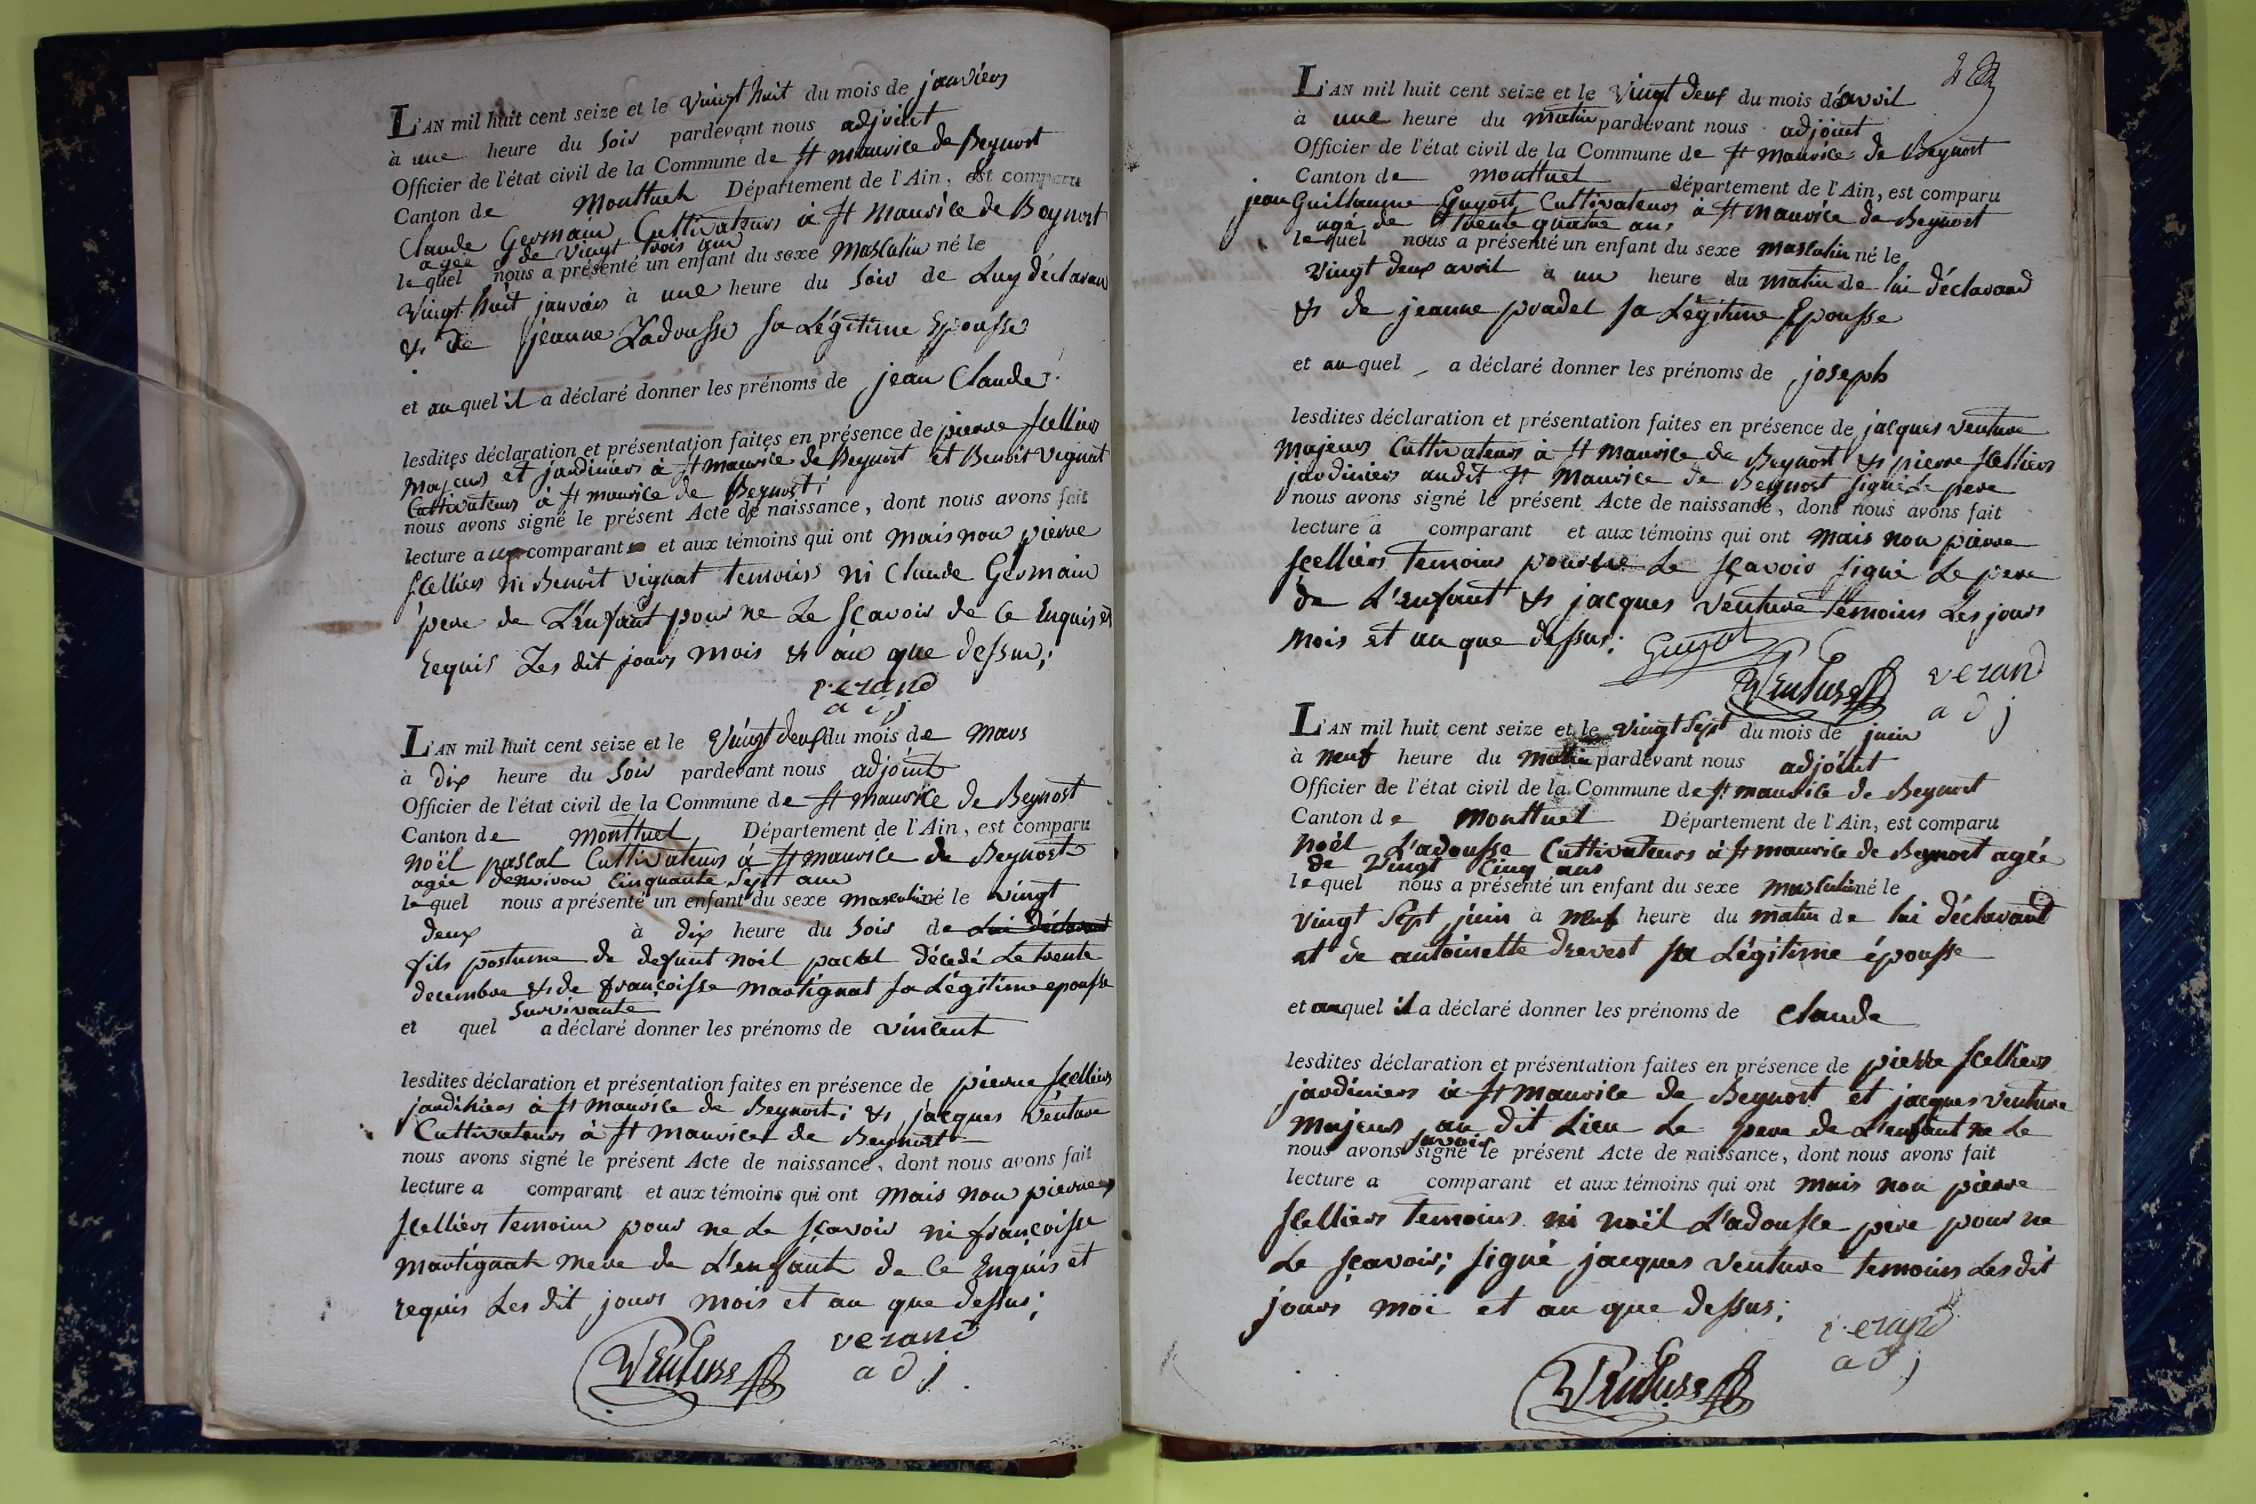 L'AN mil huit cent seize et le vingt huit du mois de janviers
à une heure du soir pardevant nous adjoint
Officier de l'état civil de la Commune de St maurice de Beynost
Canton de Montluel Département de l'Ain, est comparu
Claude Germain Cultivateurs à St Maurice de Beynost
agée de vingt trois ans
lequel nous a présenté un enfant du sexe Masculin né le
vingt huit janviers à une heure du soir de Luy déclarans
& de jeanne Ladousse sa Légitime Epousse
et au quel il a déclaré donner les prénoms de jean Claude
lesdites déclaration et présentation faites en présence de pierre scelliers
Majeurs et jardiniers à St maurice de Beynost et Benoit vignat
Cultivateurs à St maurice de Beynost;
nous avons signé le présent Acte de naissance, dont nous avons fait
lecture au comparant et aux témoins qui ont Mais non pierre
scelliers ni Benoit vignat temoins ni Claude Germain
pere de L'enfant pour ne Le sçavoir de Ce Enquis et
requis Les dit jours mois & an que dessus;
verand
adj
L'AN mil huit cent seize et le vingt deux du mois de Mars
à dix heure du soir pardevant nous adjoint
Officier de l'état civil de la Commune de St maurice de Beynost
Canton de Montluel Département de l'Ain, est comparu
noël pascal Cultivateurs à St maurice de Beynost
agée denviron Cinquante sept ans
lequel nous a présenté un enfant du sexe masculin né le vingt
deux à dix heure du soir de Lui déclarant
fils postume de defunt noël pacal décedé Le trente
decembre & de françoisse martignat sa Légitime epousse
survivante
et quel a déclaré donner les prénoms de vincent
lesdites déclaration et présentation faites en présence de pierre scelliers
jardiniers à St Maurice de Beynost; & jacques venture
Cultivateurs à St Maurice de Beynost
nous avons signé le présent Acte de naissance, dont nous avons fait
lecture a comparant et aux témoins qui ont mais non pierre
scelliers temoins pour ne Le sçavoir ni françoisse
martignat mere de L'enfant de Ce Enquis et
requis Les dit jours mois et an que dessus;
verand
Venture adj
L'AN mil huit cent seize et le vingt deux du mois d'avril
à une heure du matin pardevant nous adjoint
Officier de l'état civil de la Commune de St Maurice de Beynost
Canton de Montluel département de l'Ain, est comparu
jean Guillaume Guyot Cultivateurs à St Maurice de Beynost
agé de trente quatre ans
lequel nous a présenté un enfant du sexe masculin né le
vingt deux avril à un heure du matin de lui déclarand
& de jeanne pradel sa Légitime Epousse
et au quel a déclaré donner les prénoms de joseph
lesdites déclaration et présentation faites en présence de jacques venture
Majeurs Cultivateurs à St Maurice de Beynost & pierre scelliers
jardiniers audit St Maurice de Beynost signé Le pere
nous avons signé le présent Acte de naissance, dont nous avons fait
lecture a comparant et aux témoins qui ont mais non pierre
scelliers temoins pour ne Le sçavoir signé Le pere
de L'enfant & jacques venture Temoins Les jours
mois et an que dessus;
Guyot
Venture verand
adj
L'AN mil huit cent seize et le vingt sept du mois de juin
à neuf heure du matin pardevant nous adjoint
Officier de l'état civil de la Commune de St maurice de Beynost
Canton de Montluel Département de l'Ain, est comparu
noël L'adousse Cultivateurs à St maurice de Beynost agée
de vingt Cinq ans
lequel nous a présenté un enfant du sexe masculin né le
vingt sept juin à neuf heure du matin de lui déclarant
et de antoinette Drevest sa Légitime épousse
et auquel il a déclaré donner les prénoms de Claude
lesdites déclaration et présentation faites en présence de pierre scelliers
jardiniers à St Maurice de Beynost et jacques venture
majeurs au dit Lieu Le pere de L'enfant ne Le
savoir
nous avons signé le présent Acte de naissance, dont nous avons fait
lecture a comparant et aux témoins qui ont mais non pierre
scelliers temoins ni noël L'adousse pere pour ne
Le sçavoir; signé jacques venture temoins Les dit
jours moi et an que dessus;
verand
adj
Venture